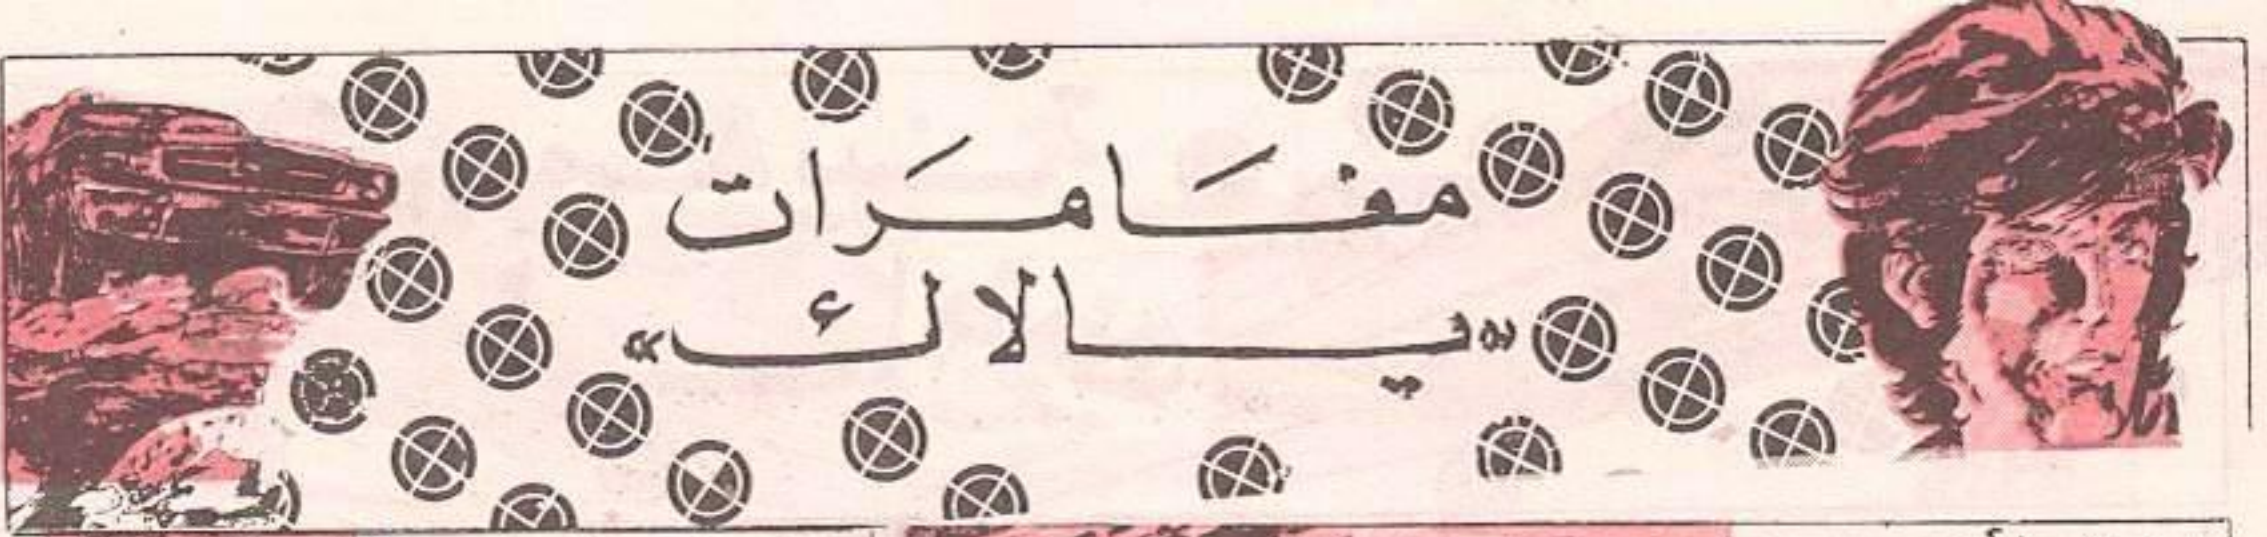 مغَامرَات
«يالاك»